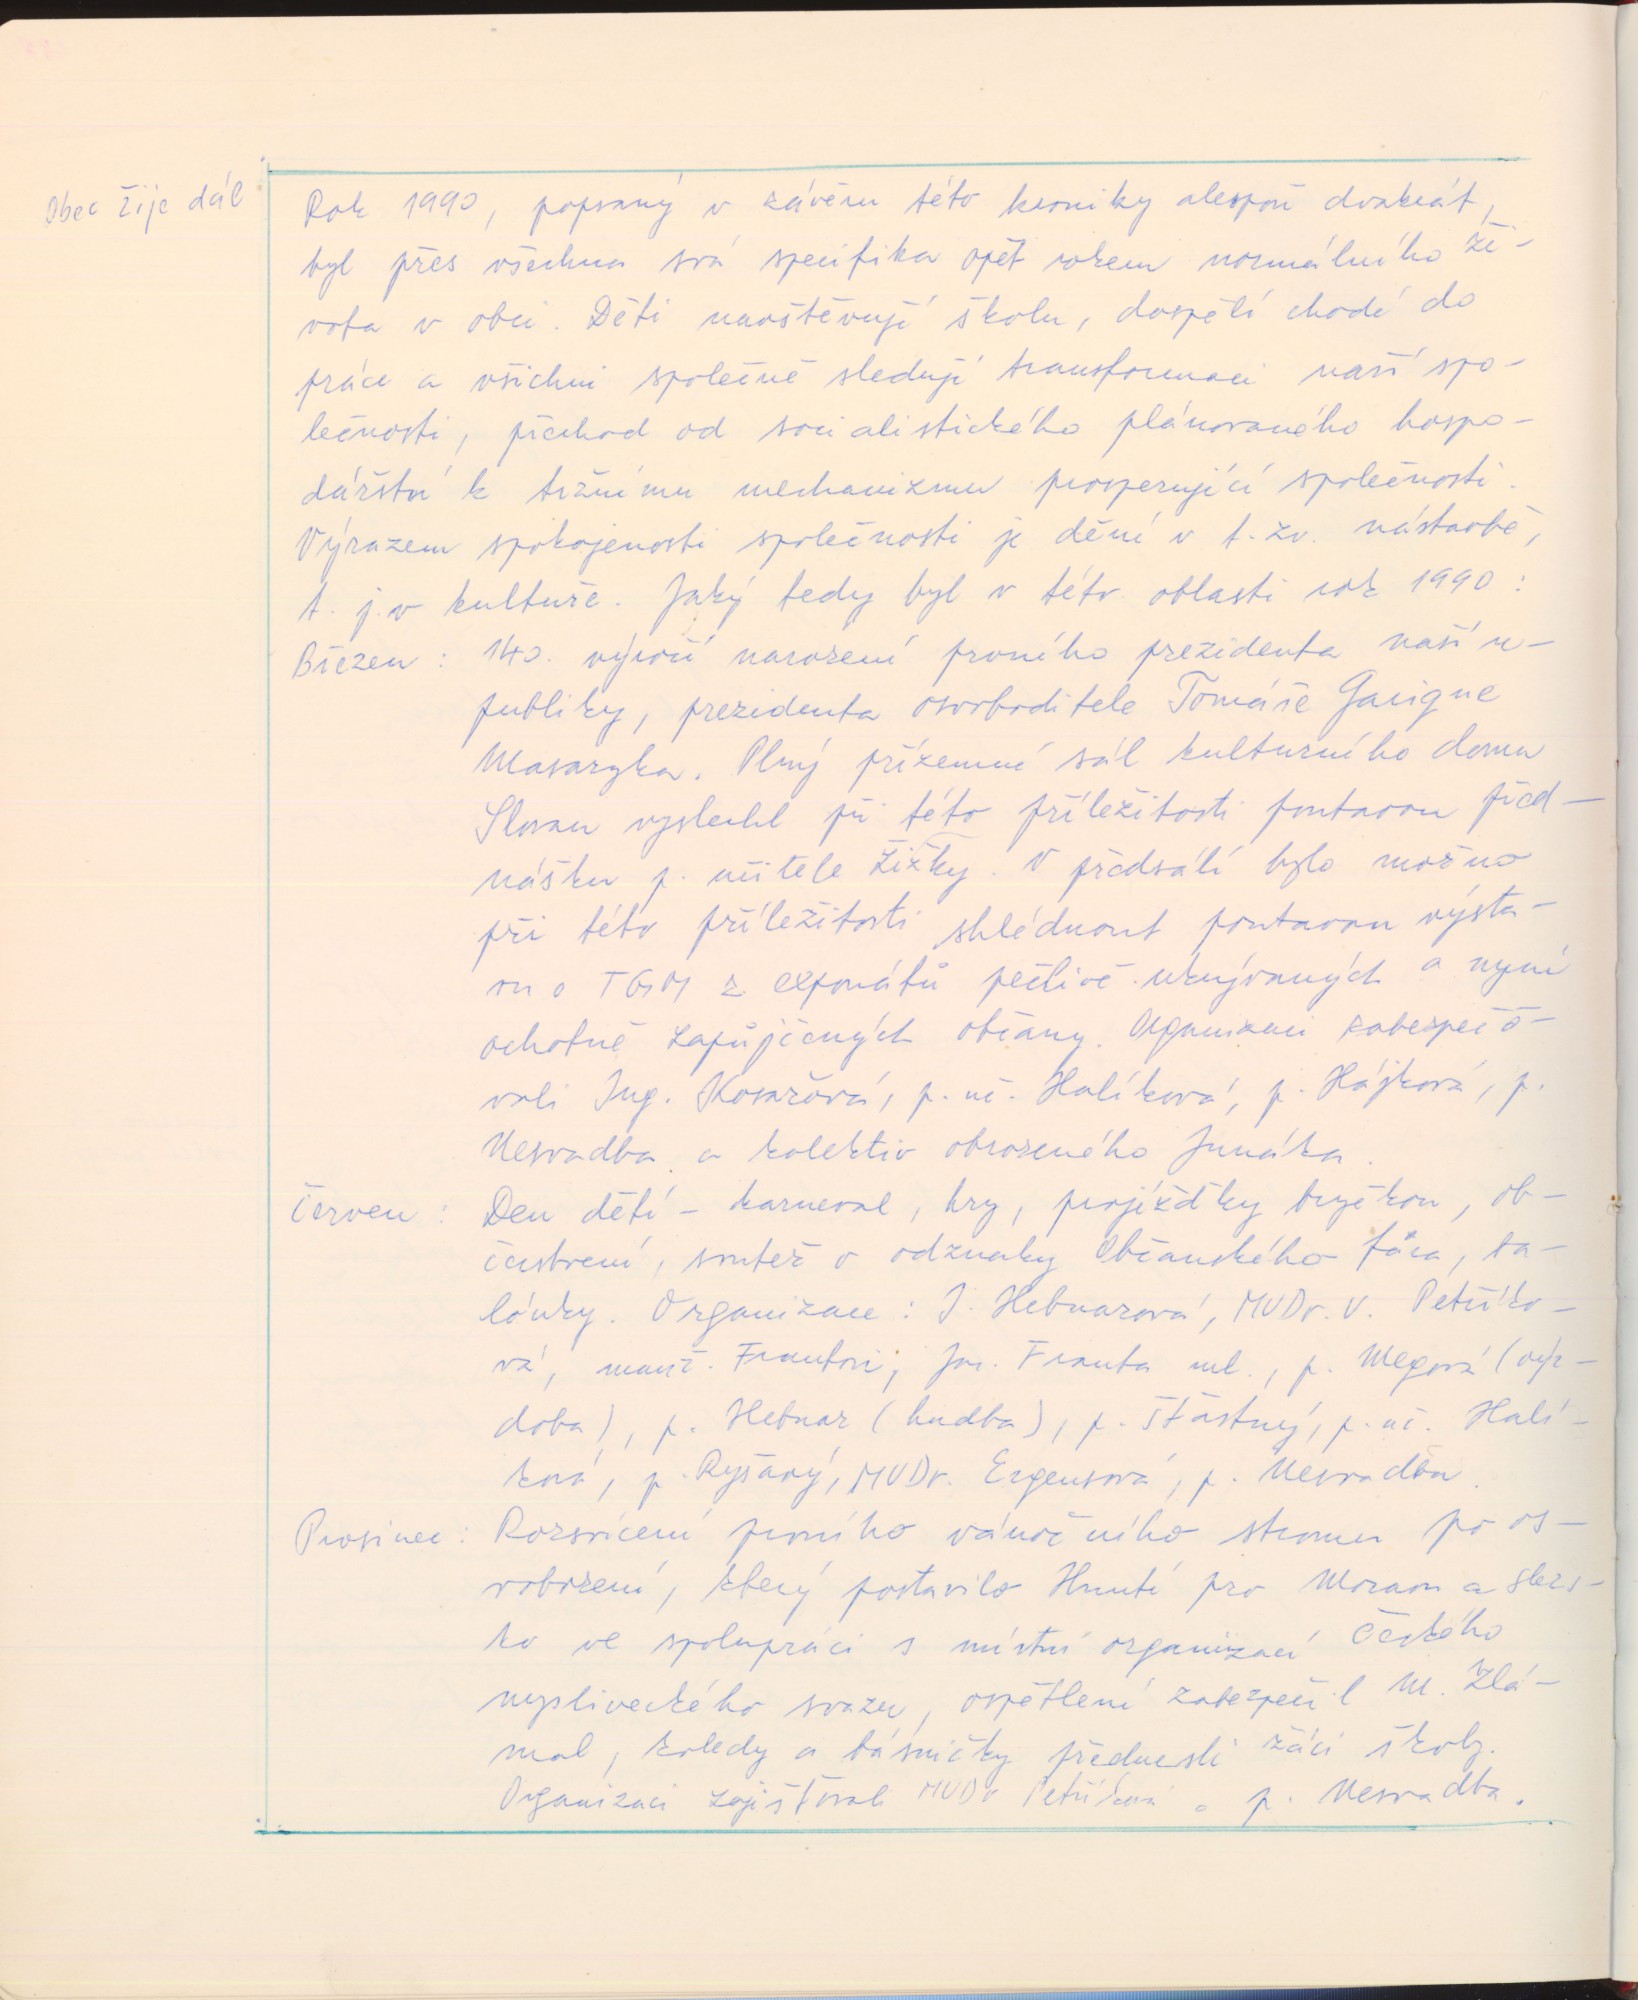 Obec žije dál
Rok 1990, popsaný v závěru této kroniky alespoň dvakrát,
byl přes všechna svá specifika opět rokem normálního ži-
vota v obci. Děti navštěvují školu, dospělí chodí do
práce a všichni společně sledují transformaci naší spo-
lečnosti, přechod od socialistického plánovaného hospo-
dářství k tržnímu mechanizmu prosperující společnosti.
Výrazem spokojenosti společnosti je dění v t. zv. nástavbě,
t. j. v kultuře. Jaký tedy byl v této oblasti rok 1990:
Březen: 140. výročí narození prvního prezidenta naší re-
publiky, prezidenta osvoboditele Tomáše Garigue
Masaryka. Plný přízemní sál kulturního domu
Slovan vyslechl při této příležitosti poutavou před-
nášku p. učitele Žižky. V předsálí bylo možno
při této příležitosti shlédnout poutavou výsta-
vu o TGM z exponátů pečlivě ukrývaných a nyní
ochotně zapůjčených občany. Organizaci zabezpečo-
vali Ing. Kosařová, p. uč. Halíková, p. Hájková, p.
Nesvadba a kolektiv obrozeného Junáka.
Červen: Den dětí - karneval, hry, projížďky bryčkou, ob-
čerstvení, soutěž o odznaky Občanského fóra, ba-
lónky. Organizace: J. Hebnarová, MUDr. V. Petříko-
vá, manž. Frantovi, Jos. Franta ml., p. Megová (výz-
doba), p. Hebnar (hudba), p. Šťastný, p. uč. Halí-
ková, p. Ryšavý, MUDr. Ergensová, p. Nesvadba.
Prosinec: Rozsvícení prvního vánočního stromu po os-
vobození, který postavilo Hnutí pro Moravu a Slezs-
ko ve spolupráci s místní organizací Českého
mysliveckého svazu, osvětlení zabezpečil M. Zlá-
mal, koledy a básničky přednesli žáci školy.
Organizaci zajišťovali MUDr Petříková a p. Nesvadba.